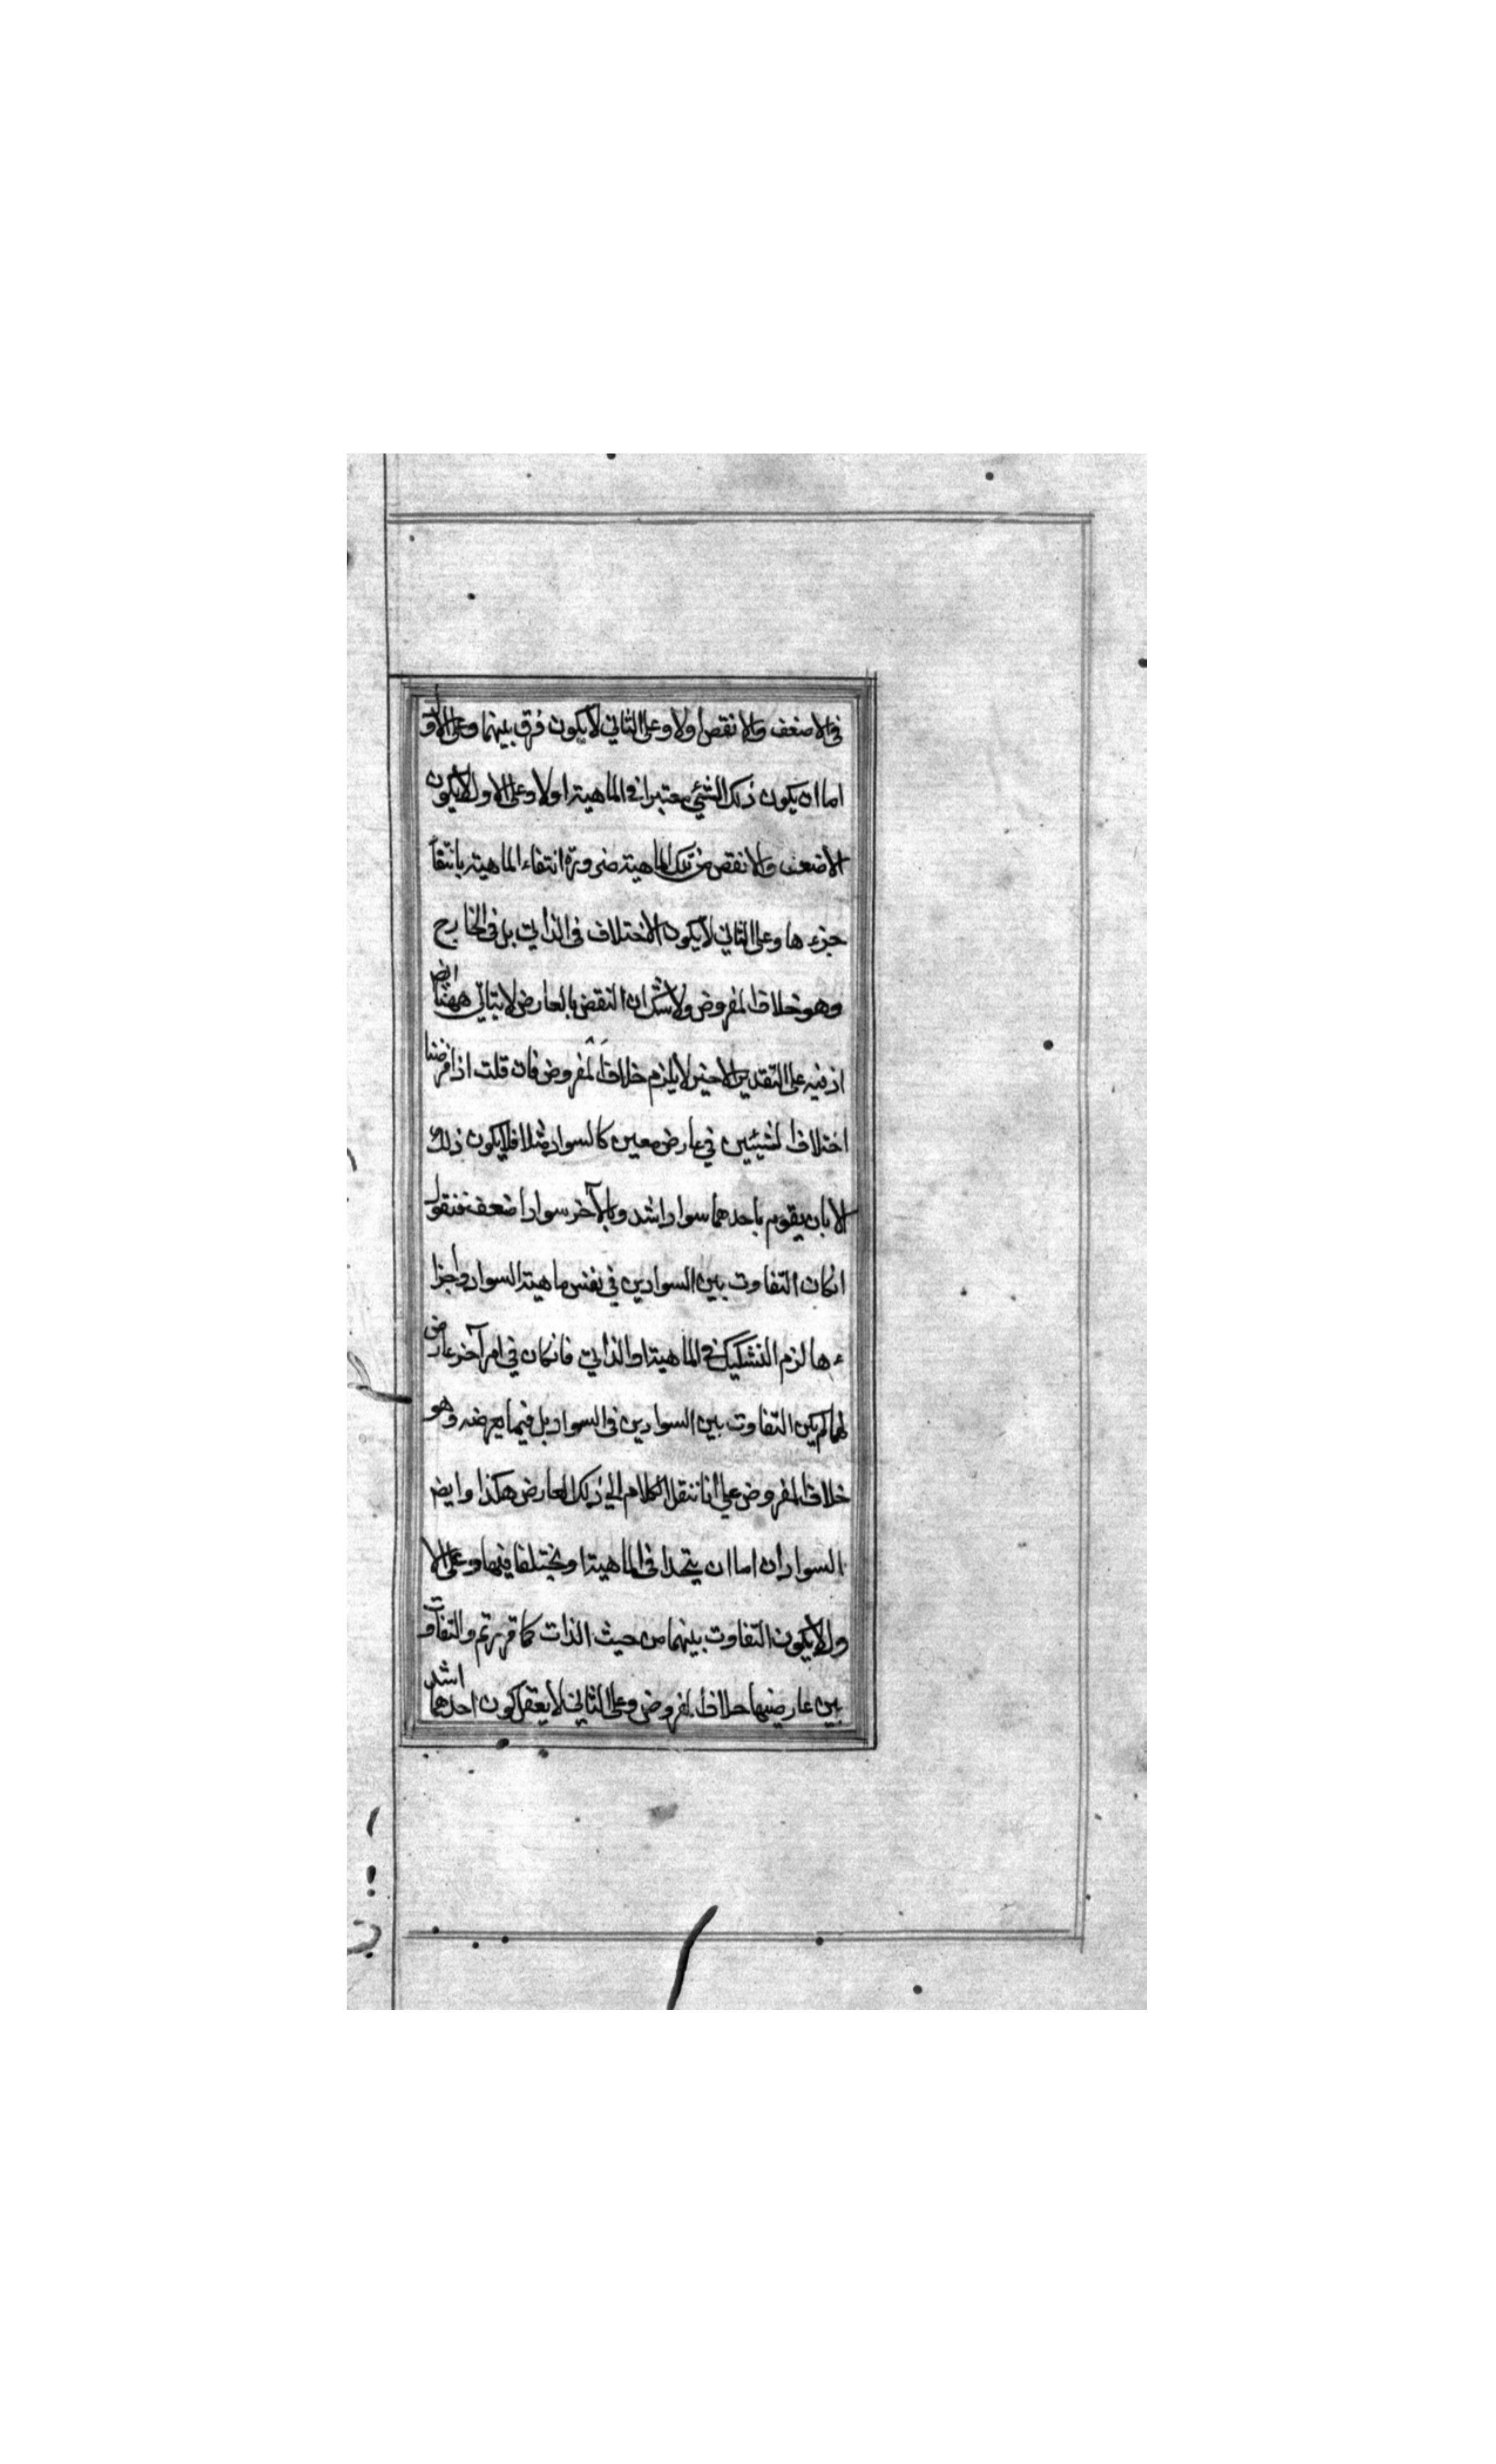 فى الاضعف والانقص اولا وعلى الثاني لا يكون فرق بينهما وعلى الاول
اما ان يكون ذلك الشيئ معتبرا في الماهية اولا وعلى الاول لا يكون
الاضعف والانقص من تلك الماهية ضرورة انتفاء الماهية بانتفاء
جزءها وعلى الثاني لا يكون الاختلاف فى الذاتي بل فى الخارج
وهو خلاف المفروض ولا شك ان النقض بالعارض لا يتاتى ههنا ايض
اذ فيه على التقدير الاخير لا يلزم خلاف المفروض فان قلت اذا فرضنا
اختلاف الشيئين في عارض معين كالسواد مثلا فلا يكون ذلك
الا بان يقوم باحدهما سواد اشد وبالآخر سواد اضعف فنقول
انكان التفاوت بين السوادين في نفس ماهية السواد واجزا
ءها لزم التشكيك فى الماهية او الذاتي فانكان في امر آخر عارض
لهما لم يكن التفاوت بين السوادين فى السواد بل فيما يعرضه وهو
خلاف المفروض على انا ننقل الكلام الى ذلك العارض هكذا وايض
السوادان اما ان يتحدا فى الماهية او يختلفا فيها وعلى الا
ول لا يكون التفاوت بينهما من حيث الذات كما قررتم والتفاوت
بين عارضيها خلاف المفروض وعلى الثاني لا يعقل كون احدهما اشد